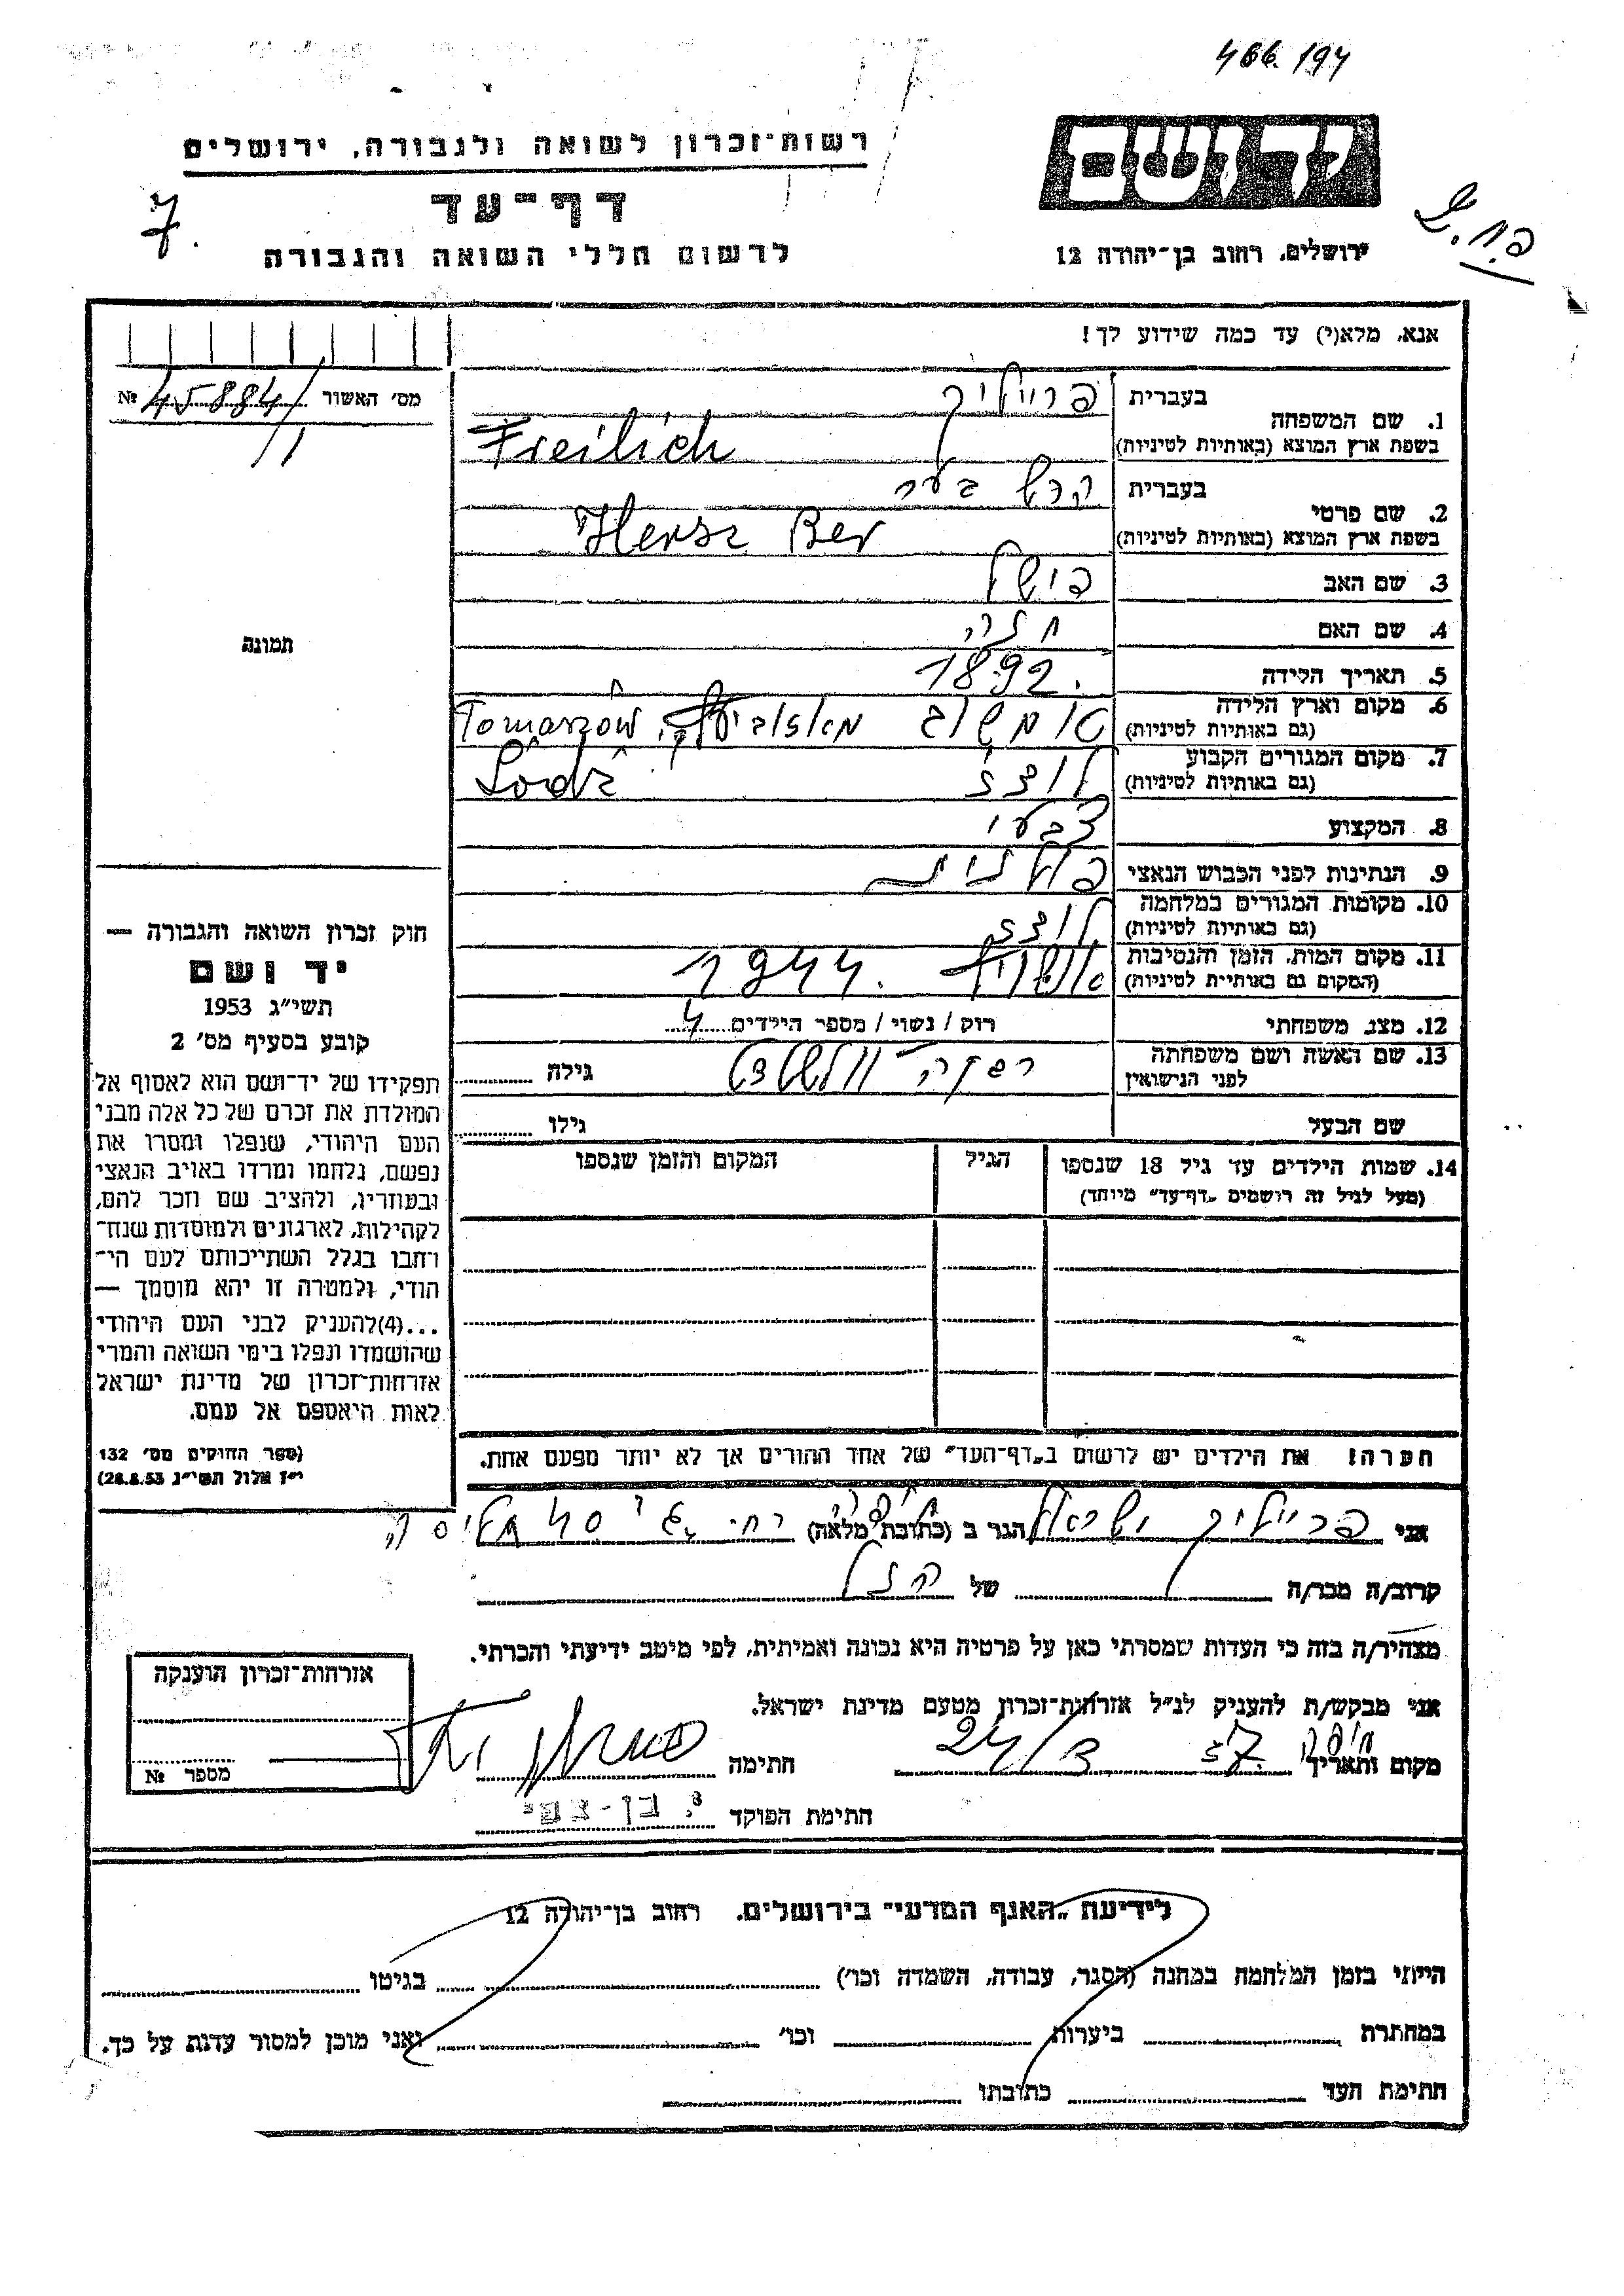 466.194
רשות-זכרון לשואה ולגבורה, ירושלים
דף-עד
לרשום חללי השואה והגבורה
7.
יד ושם
ירושלים, רחוב בן-יהודה 12
אנא, מלא(י) עד כמה שידוע לך!
מס' האשור № 45884/
בעברית פרייליך
1. שם המשפחה
בשפת ארץ המוצא (באותיות לטיניות) Freilich
בעברית הרש בער
2. שם פרטי
בשפת ארץ המוצא (באותיות לטיניות) Hersz Ber
3. שם האב פישל
4. שם האם חנה
5. תאריך הלידה 1892.
6. מקום וארץ הלידה
(גם באותיות לטיניות) Tomaszów
7. מקום המגורים הקבוע
(גם באותיות לטיניות) לודז Lodz
8. המקצוע צבעי
9. הנתינות לפני הכבוש הנאצי פולנית
10. מקומות המגורים במלחמה
(גם באותיות לטיניות) לודז
11. מקום המות, הזמן והנסיבות
(המקום גם באותיות לטיניות) אושויץ 1944.
12. מצב משפחתי רוק / נשוי / מספר הילדים 4
13. שם האשה ושם משפחתה
לפני הנישואין רבקה גילה
שם הבעל גילו
14. שמות הילדים עד גיל 18 שנספו הגיל המקום והזמן שנספו
(מעל לגיל זה רושמים "דף-עד" מיוחד)
הערה! את הילדים יש לרשום ב"דף-העד" של אחד ההורים אך לא יותר מפעם אחת.
תמונה
חוק זכרון השואה והגבורה —
יד ושם
תשי"ג 1953
קובע בסעיף מס' 2
תפקידו של יד-ושם הוא לאסוף אל
המולדת את זכרם של כל אלה מבני
העם היהודי, שנפלו ומסרו את
נפשם, נלחמו ומרדו באויב הנאצי
ובעוזריו, ולהציב שם וזכר להם,
לקהילות, לארגונים ולמוסדות שנח-
רבו בגלל השתייכותם לעם הי-
הודי, ולמטרה זו יהא מוסמך —
...(4)להעניק לבני העם היהודי
שהושמדו ונפלו בימי השואה והמרי
אזרחות-זכרון של מדינת ישראל
לאות היאספם אל עמם.
(ספר החוקים מס' 132
י"ז אלול תשי"ג 28.8.53)
אני פרייליך ישראל הגר ב (כתובת מלאה) חיפה רח'
קרוב/ה מכר/ה של הנ"ל
מצהיר/ה בזה כי העדות שמסרתי כאן על פרטיה היא נכונה ואמיתית, לפי מיטב ידיעתי והכרתי.
אני מבקש/ת להעניק לנ"ל אזרחות-זכרון מטעם מדינת ישראל.
מקום ותאריך חיפה 24/3 57. חתימה
חתימת הפוקד
אזרחות-זכרון הוענקה
מספר №
לידיעת "האגף המדעי" בירושלים, רחוב בן-יהודה 12
הייתי בזמן המלחמה במחנה (הסגר, עבודה, השמדה וכו') בגיטו
במחתרת ביערות וכו' ואני מוכן למסור עדות על כך.
חתימת העד כתובתו